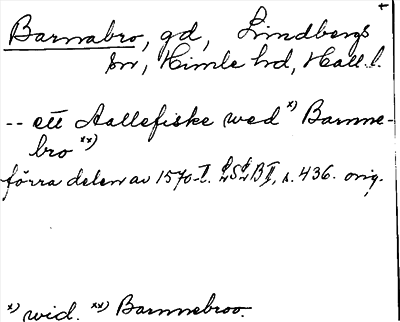 Barnabro, gd, Lindbergs
sn, Himle hd, Hall. l.
-- ett Aallefiske wed x) Barnne-
bro xx)
förra delen av 1570-t. B II, s. 436. orig.
x) wid. xx) Barnnebroo.